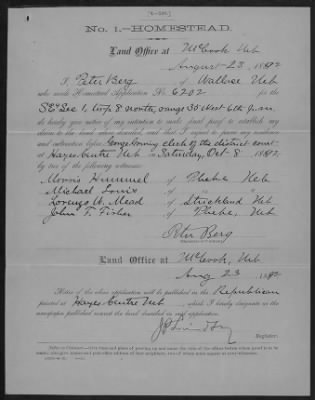 No. 1.—HOMESTEAD.
Land Office at McCook, Neb
August 23, 1892
I, Peter Berg of Wallace Neb
who made Homestead Application No. 6202 for the
SE Sec 1, twp 8 north, range 30 West 6th p.m.
do hereby give notice of my intention to make final proof to establish my
claim to the land above described, and that I expect to prove my residence
and cultivation before George clerk of the district court
at Hayes Centre Neb on Saturday, Oct 8, 1892,
by two of the following witnesses:
Morris Hummel of Phebe Neb
Michael of " "
Lorenzo W. Mead of Strickland Neb
John T. Fisher of Phebe, Neb
Peter Berg
Land Office at McCook, Neb
Aug 23 1892
Notice of the above application will be published in the Republican
printed at Hayes Centre Neb, which I hereby designate as the
newspaper published nearest the land described in said application.
Register.